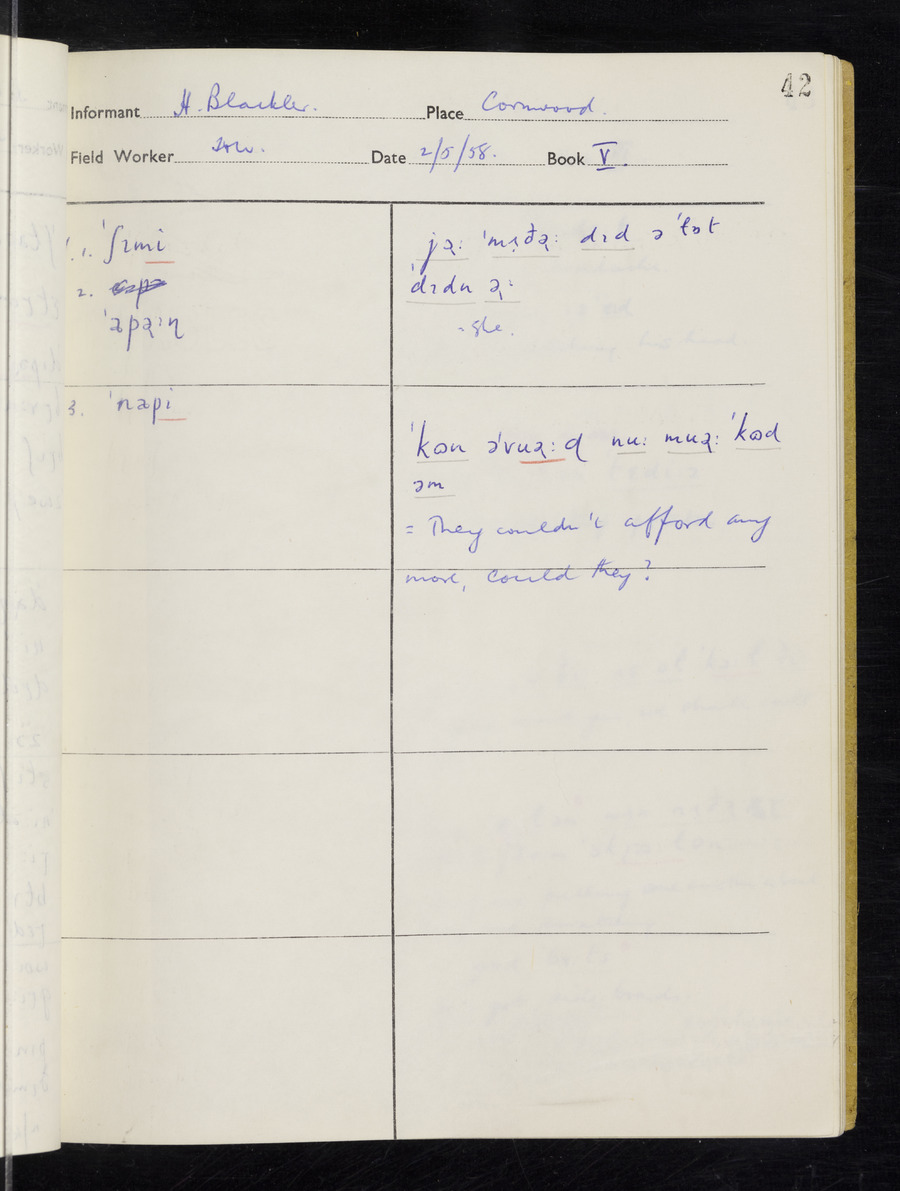 42
Informant H. Blackler. Place Cornwood.
Field Worker Date 2/5/58. Book V.
1. ˈʃɪmi
2.
ˈəpəːɳ
jəː ˈmɪðəː dɪd əˈtɒt
ˈdɪdn əː
= she.
3. ˈnəpi
ˈkɒn əˈvuəːd nuː muəː ˈkɒd
əm
= They couldn't afford any
more, could they?